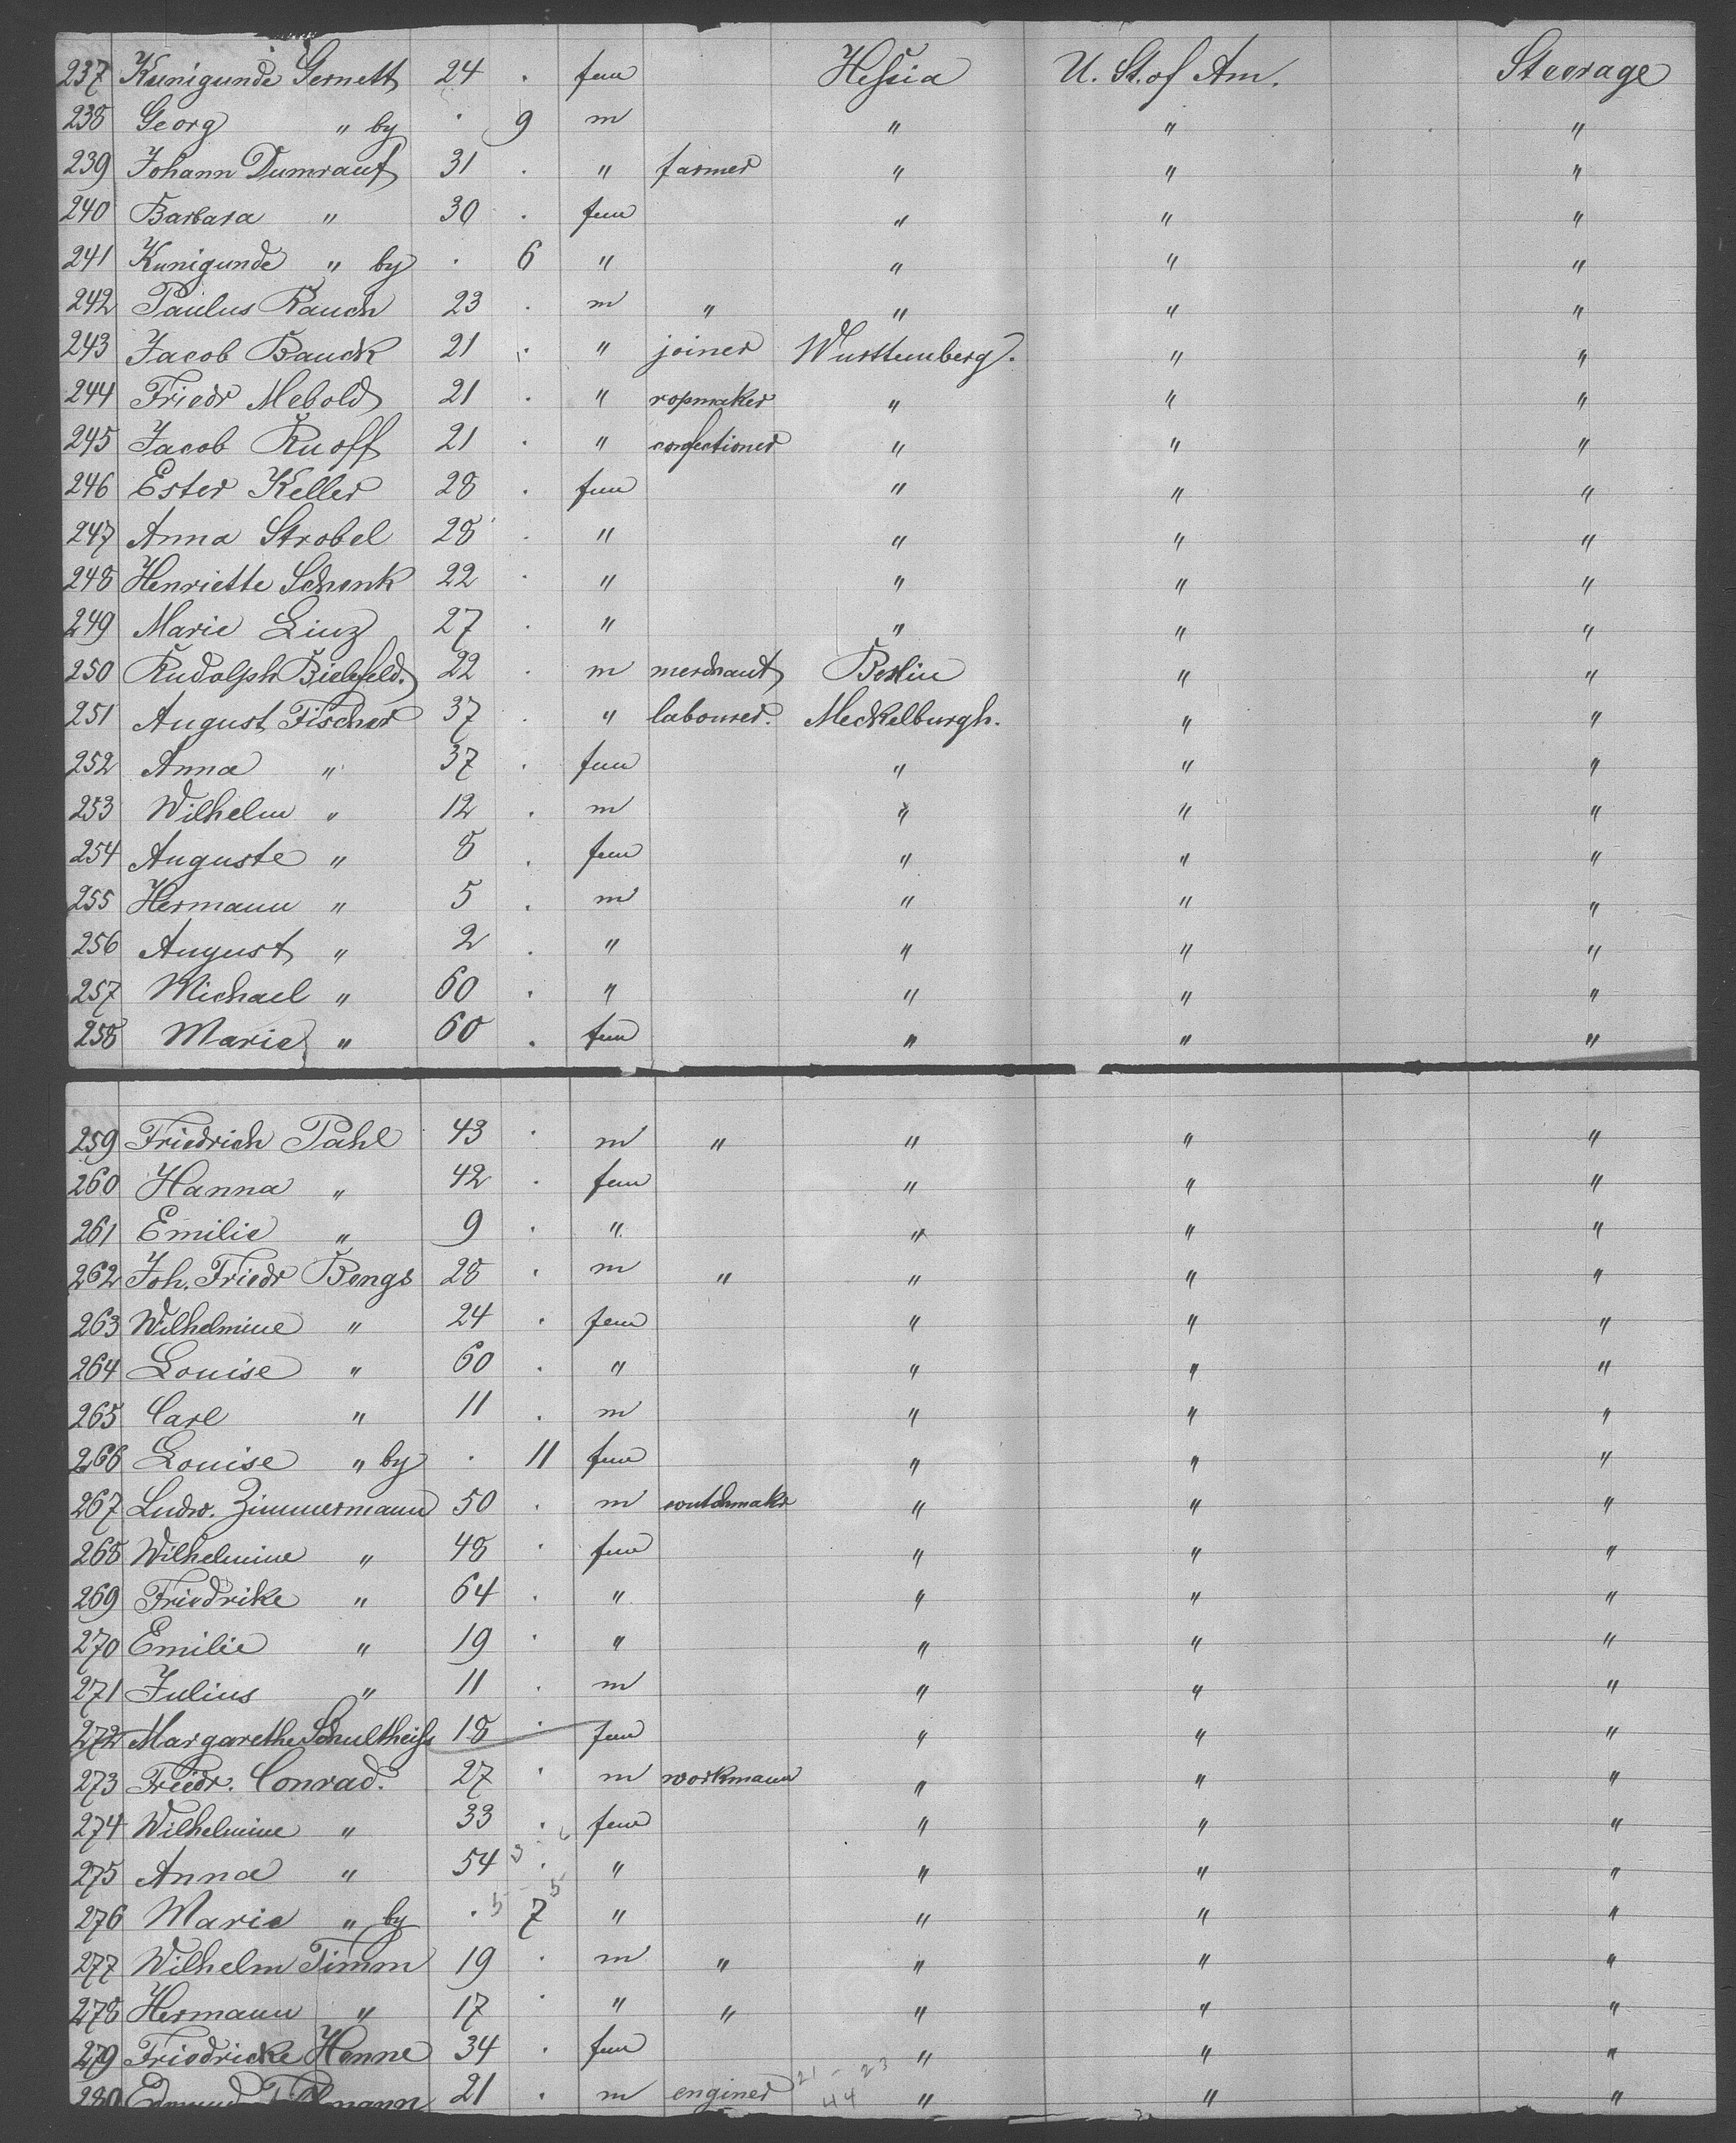 237 Kunigunde Gernett 24 . fem Heßia U. St. of Am. Steerage
238 Georg " by . 9 m " " "
239 Johann Dumrauf 31 . " farmer " " "
240 Barbara " 30 . fem " " "
241 Kunigunde " by . 6 " " " "
242 Paulus Rauch 23 . m " " " "
243 Jacob Bauck 21 . " joiner Wurttemberg. " "
244 Friedr Mebold 21 . " ropmaker " " "
245 Jacob Ruoff 21 . " confectioner " " "
246 Ester Keller 28 . fem " " "
247 Anna Strobel 28 . " " " "
248 Henriette Schenk 22 . " " " "
249 Marie Linz 27 . " " " "
250 Rudolph Bielefeld. 22 . m merchant Berlin " "
251 August Fischer 37 . " labourer. Meckelburgh. " "
252 Anna " 37 . fem " " "
253 Wilhelm " 12 . m " " "
254 Auguste " 8 . fem " " "
255 Hermann " 5 . m " " "
256 August " 2 . " " " "
257 Michael " 60 . " " " "
258 Marie " 60 . fem " " "
259 Friedrich Pahl 43 . m " " " "
260 Hanna " 42 . fem " " "
261 Emilie " 9 . " " " "
262 Joh. Friedr Bengs 28 . m " " " "
263 Wilhelmine " 24 . fem " " "
264 Louise " 60 . " " " "
265 Carl " 11 . m " " "
266 Louise " by . 11 fem " " "
267 Ludw. Zimmermann 50 . m " " "
268 Wilhelmine " 48 . fem " " "
269 Friedrike " 64 . " " " "
270 Emilie " 19 . " " " "
271 Julius " 11 . m " " "
272 Margarethe Schultheiß 18 . fem " " "
273 Friedr. Conrad. 27 . m workmann " " "
274 Wilhelmine " 33 . fem " " "
275 Anna " 54 . " " " "
276 Marie " by . 7 " " " "
277 Wilhelm Timm 19 . m " " " "
278 Hermann " 17 . " " " " "
279 Friedricke Henne 34 . fem " " "
280 Edmund 21 . m enginer " " "
21 - 23
44